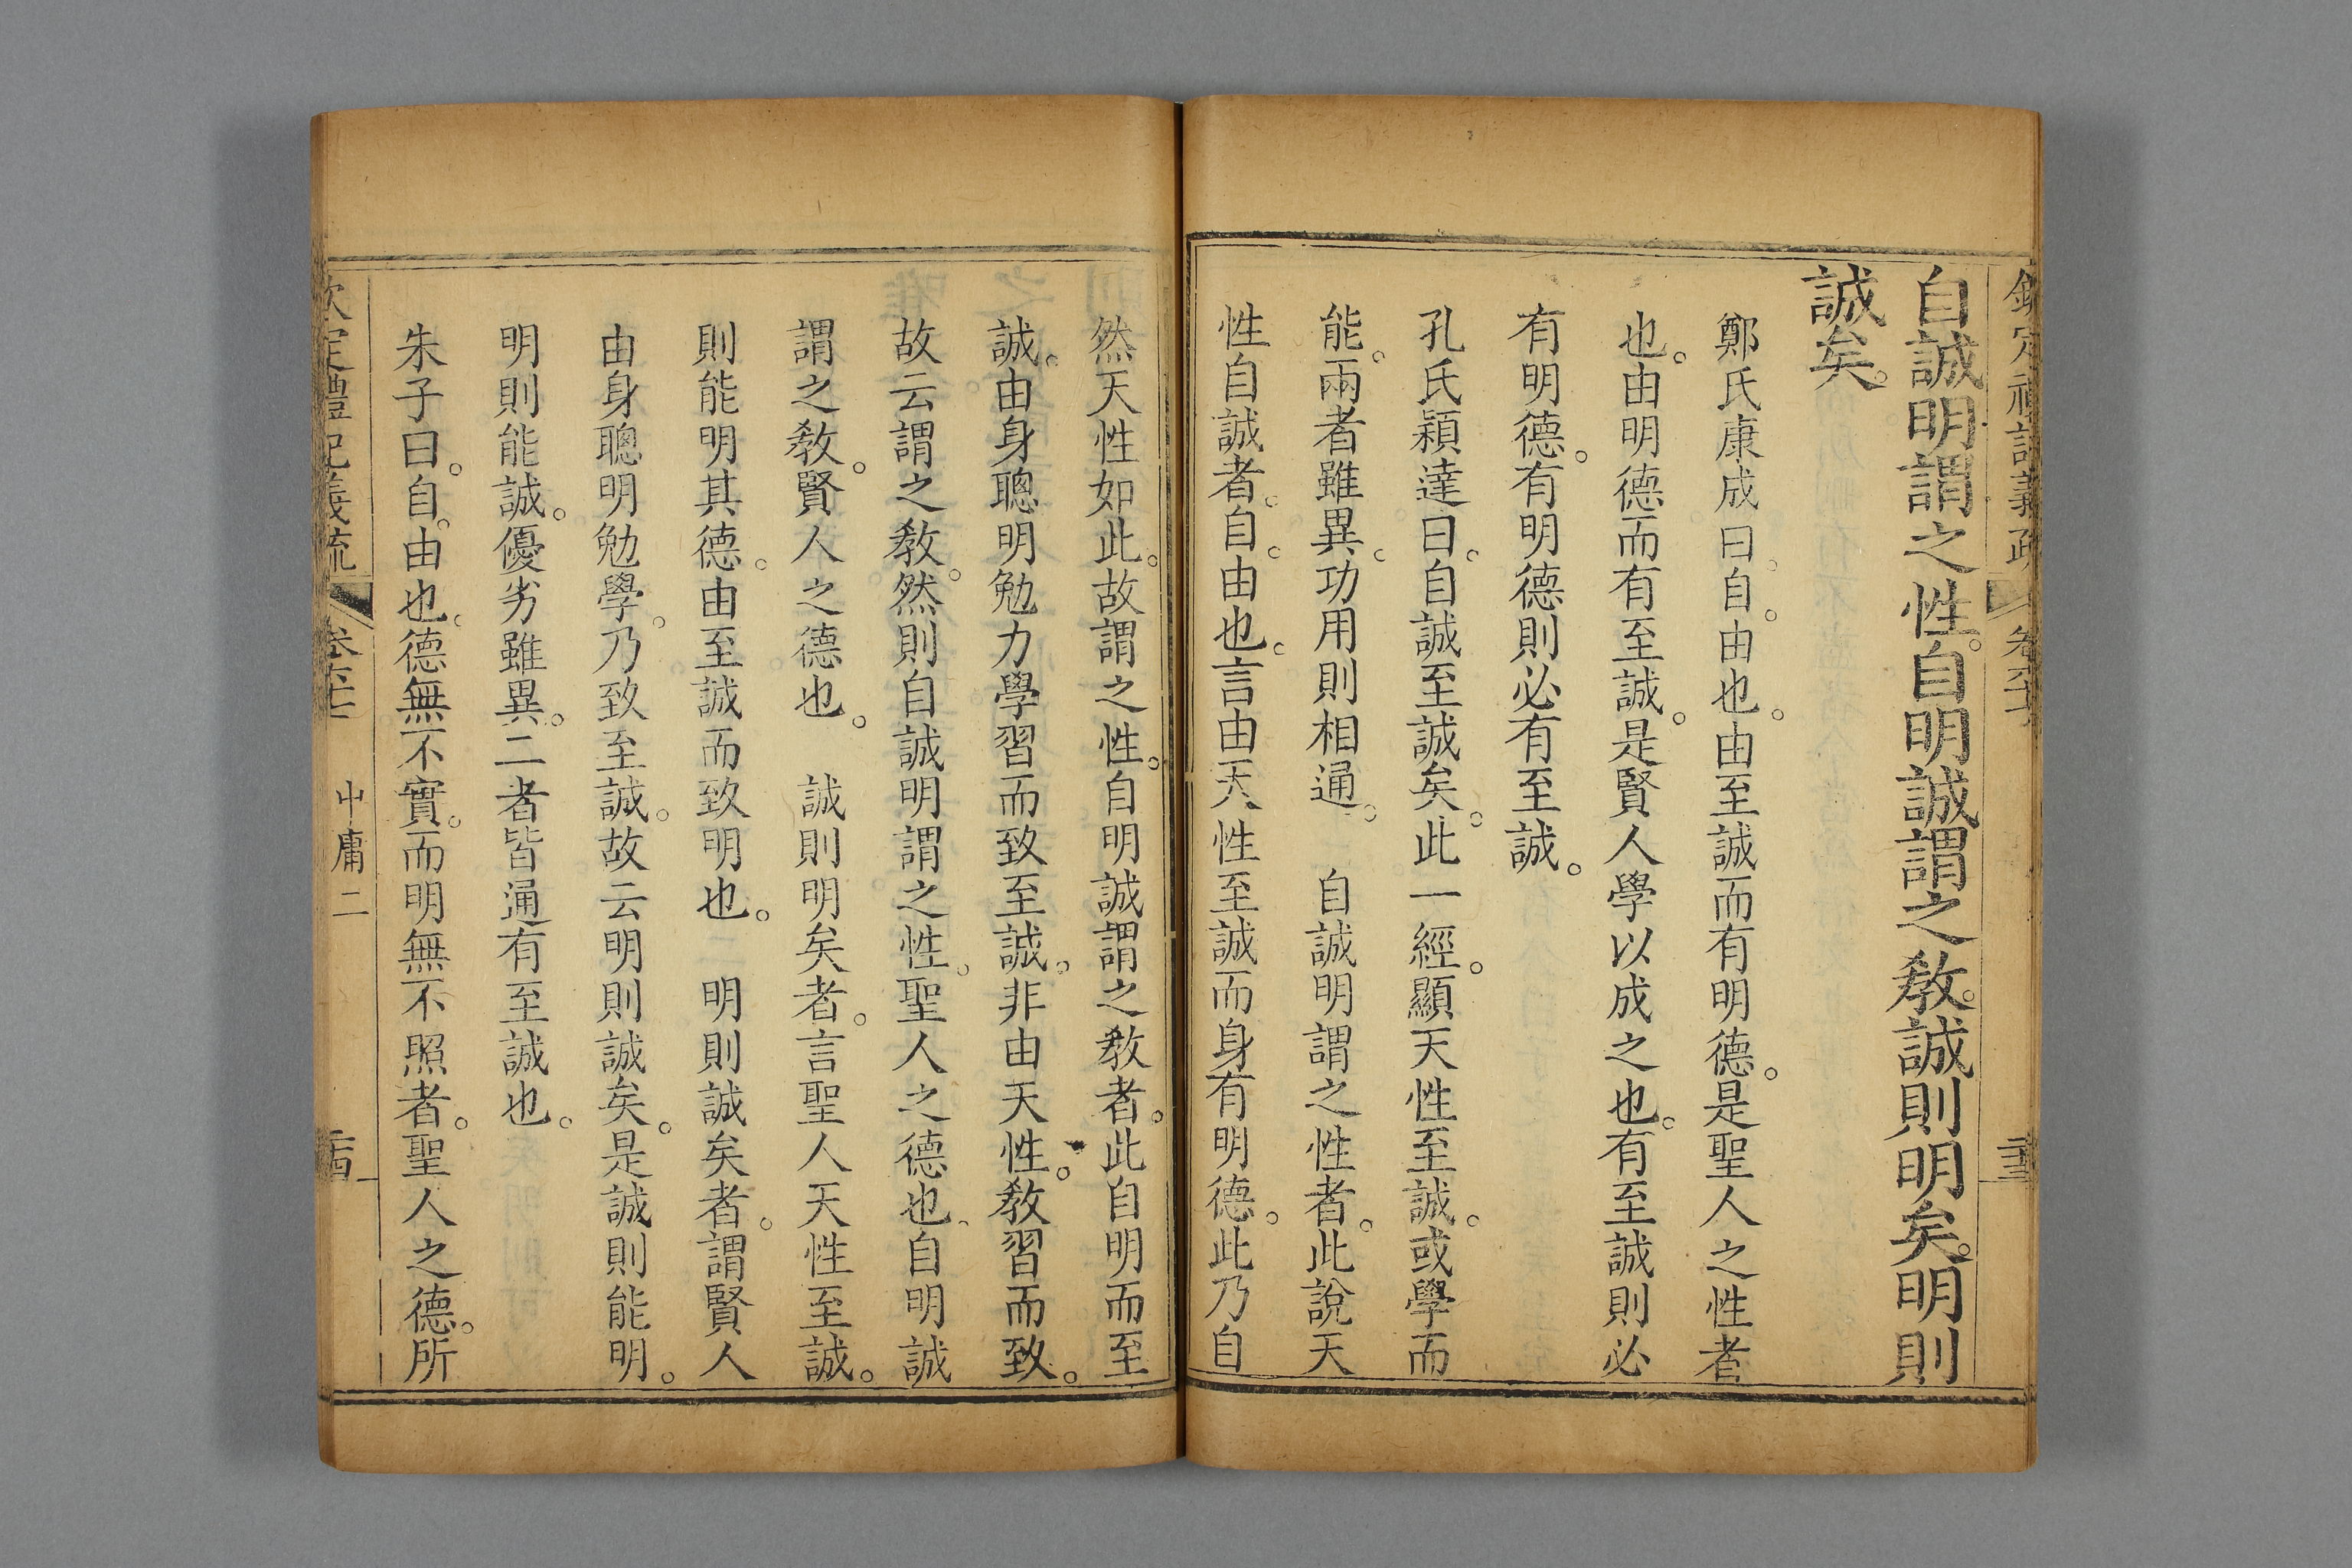 自誠明謂之性。自明誠謂之敎。誠則明矣。明則
誠矣。
鄭氏康成曰自。由也。由至誠而有明德。是聖人之性者
也。由明德而有至誠。是賢人學以成之也。有至誠則必
有明德。有明德則必有至誠。
孔氏穎達曰。自誠至誠矣。此一經。顯天性至誠。或學而
能。兩者雖異。功用則相通。 自誠明謂之性者。此說天
性自誠者。自。由也。言由天性至誠而身有明德。此乃自
然天性如此。故謂之性。自明誠謂之敎者。此自明而至
誠。由身聰明勉力學習而致至誠。非由天性。敎習而致。
故云謂之敎。然則自誠明謂之性。聖人之德也。自明誠
謂之敎。賢人之德也。 誠則明矣者。言聖人天性至誠。
則能明其德。由至誠而致明也。 明則誠矣者。謂賢人
由身聰明勉學。乃致至誠。故云明則誠矣。是誠則能明。
明則能誠。優劣雖異。二者皆通有至誠也。
朱子曰。自。由也。德無不實。而明無不照者。聖人之德。所
欽定禮記義疏 卷 中庸二